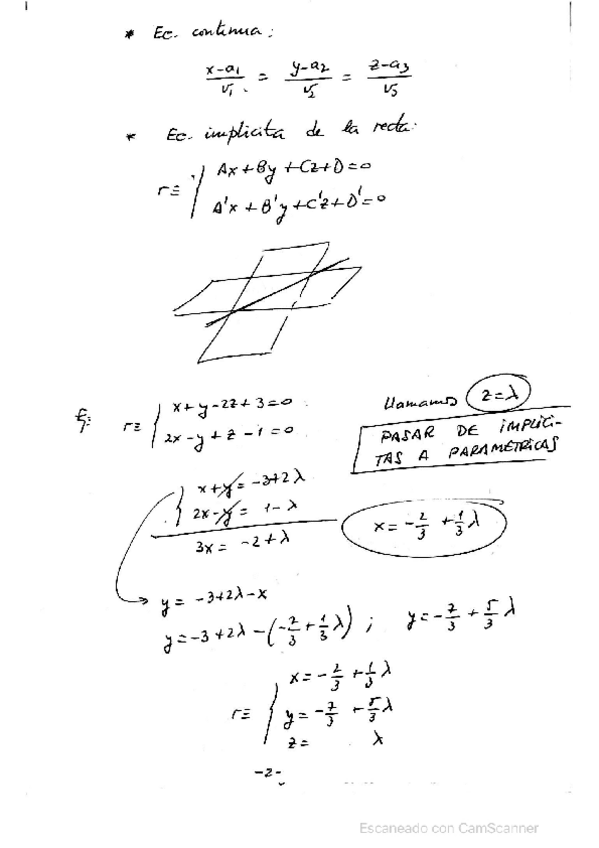 * Ec. continua:
x-a₁/v₁ = y-a₂/v₂ = z-a₃/v₃
* Ec. implicita de la recta:
r≡ { Ax+By+Cz+D=0
A'x+B'y+C'z+D'=0
Ej:
r≡ { x+y-2z+3=0
2x-y+z-1=0
llamamos z=λ
PASAR DE IMPLICI-
TAS A PARAMÉTRICAS
{ x+y = -3+2λ
2x-y = 1-λ
3x = -2+λ
x = -2/3 + 1/3 λ
y = -3+2λ-x
y = -3+2λ-(-2/3+1/3 λ) ; y = -7/3 + 5/3 λ
r≡ { x = -2/3 + 1/3 λ
y = -7/3 + 5/3 λ
z = λ
-2-
Escaneado con CamScanner